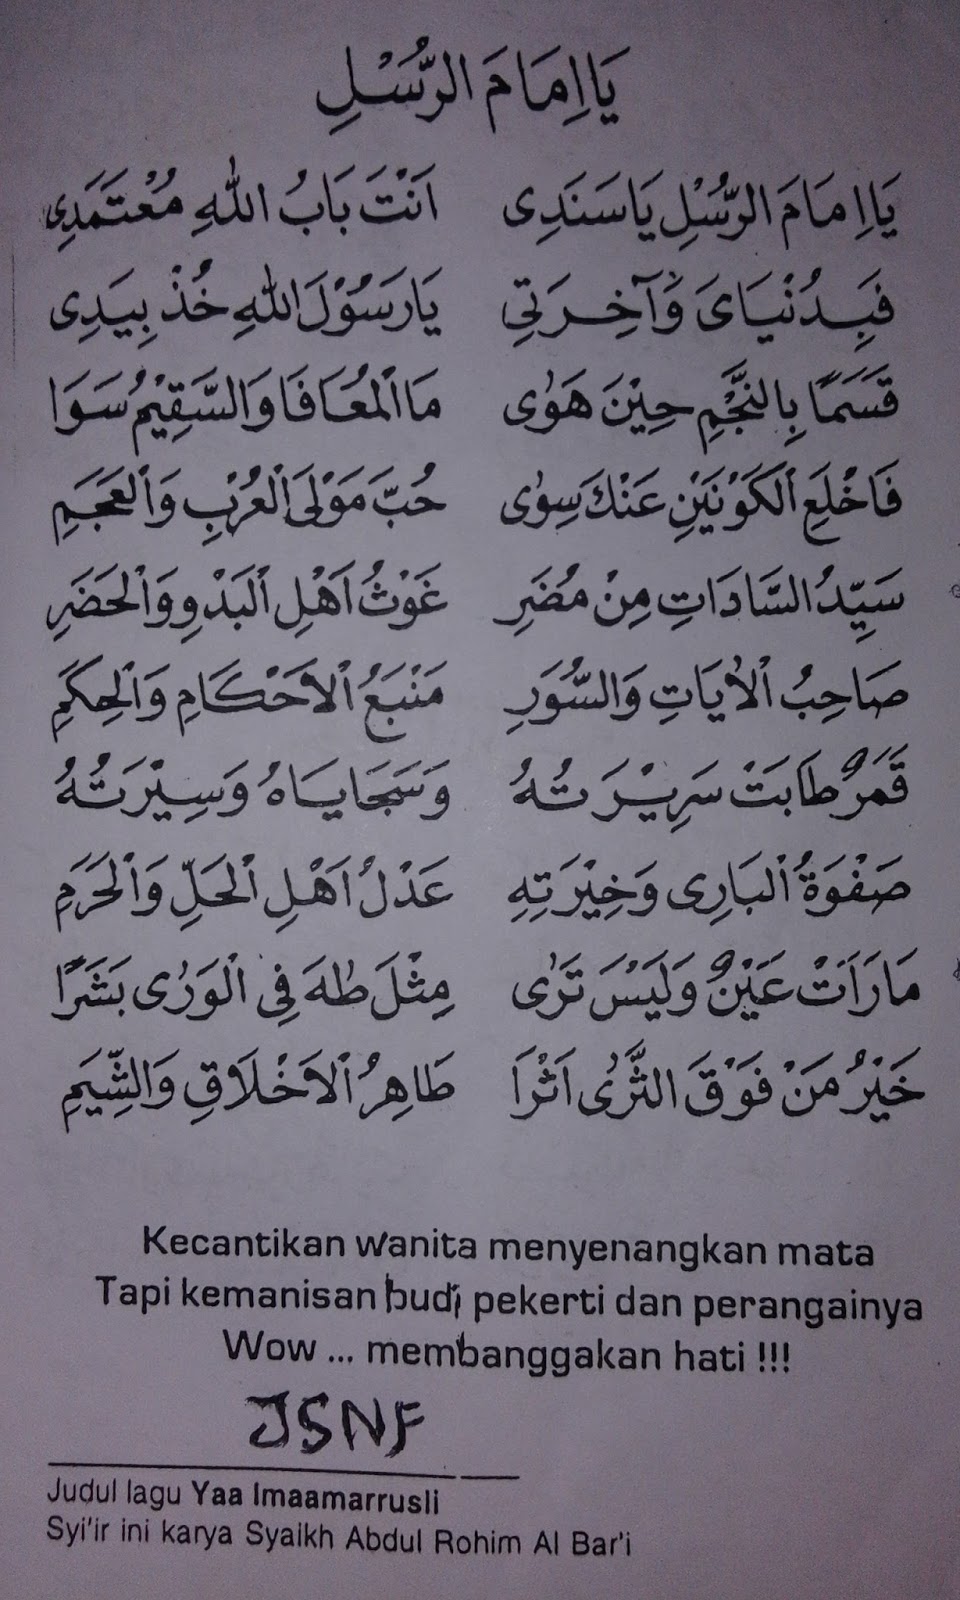 يَا اِمَامَ الرُّسْلِ
يَا اِمَامَ الرُّسْلِ يَا سَنَدِى اَنْتَ بَابُ اللهِ مُعْتَمَدِى
فَبِدُنْيَاىَ وَآخِرَتِى يَارَسُوْلَ اللهِ خُذْ بِيَدِى
قَسَمًا بِالنَّجْمِ حِيْنَ هَوٰى مَاالْمُعَافَا وَالسَّقِيْمُ سَوَا
فَاخْلَعِ الْكَوْنَيْنِ عَنْكَ سِوٰى حُبَّ مَوْلىَ الْعُرْبِ وَالْعَجَمِ
سَيِّدُ السَّادَاتِ مِنْ مُضَرِ غَوْثُ اَهْلِ الْبَدْوِ وَالْحَضَرِ
صَاحِبُ الْاٰيَاتِ وَالسُّوَرِ مَنْبَعُ الْاَحْكَامِ وَالْحِكَمِ
قَمَرٌ طَابَتْ سَرِيْرَتُهُ وَسَجَايَاهُ وَسِيْرَتُهُ
صَفْوَةُ الْبَارِى وَخِيْرَتِهِ عَدْلُ اَهْلِ الْحَلِّ وَالْحَرَمِ
مَارَاَتْ عَيْنٌ وَلَيْسَ تَرٰى مِثْلَ طٰهَ فِى الْوَرٰى بَشَرًا
خَيْرُ مَنْ فَوْقَ الثَّرٰى اَثْرَا طَاهِرُ الْاَخْلَاقِ وَالشِّيَمِ
Kecantikan wanita menyenangkan mata
Tapi kemanisan budi pekerti dan perangainya
Wow ... membanggakan hati !!!
JSNF
Judul lagu Yaa Imaamarrusli
Syi'ir ini karya Syaikh Abdul Rohim Al Bar'i